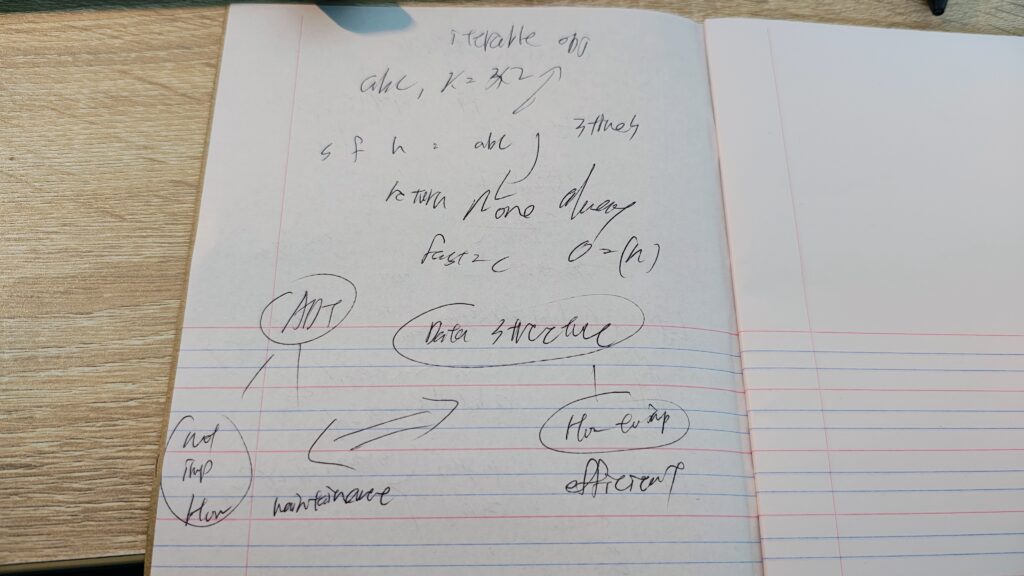 iterable obj
abc, K = 3
3 times
s f h : abc
return None
fast = c O = (n)
ADT
Data structure
not
imp
How
How to imp
maintainance
efficient